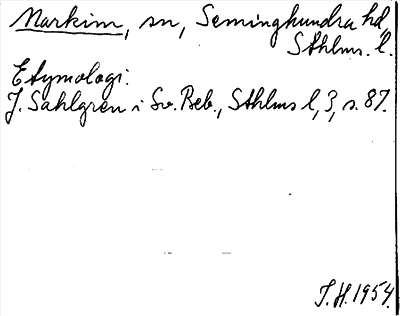 Markim, sn, Seminghundra hd
Sthlms. l.
Etymologi:
J. Sahlgren i Sv. Beb., Sthlms l, 3, s. 87.
T. H. 1954.